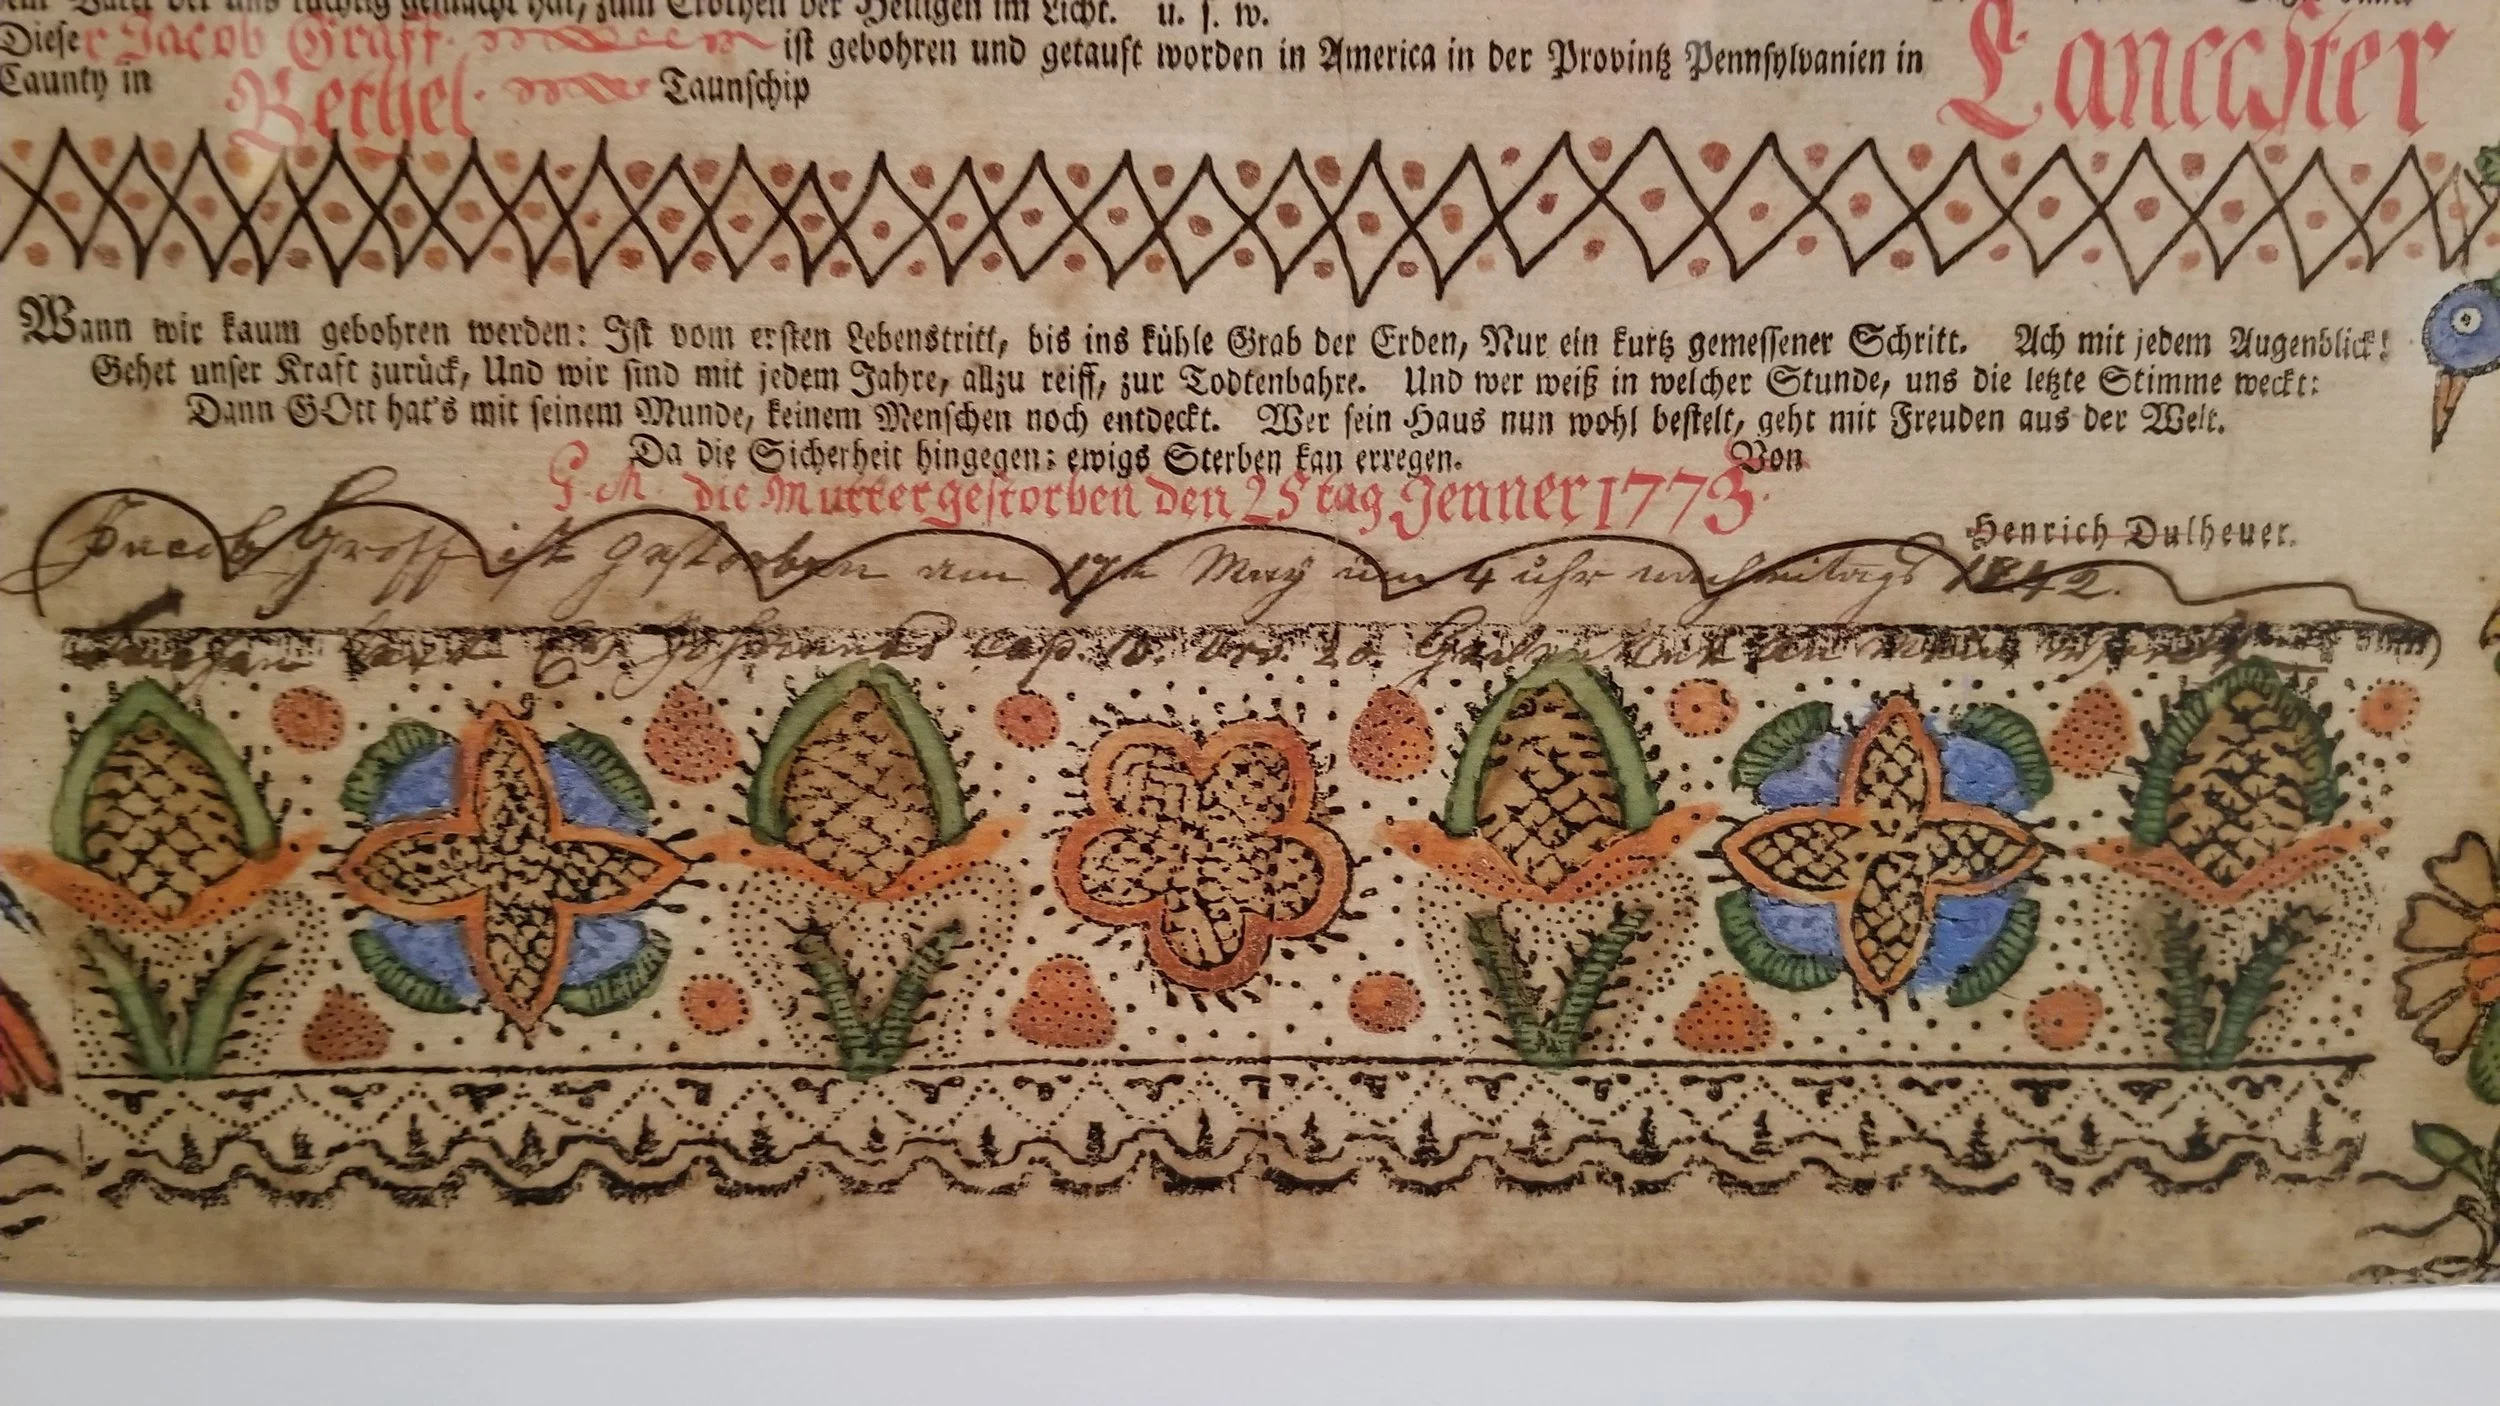 Vater der uns tüchtig gemacht hat, zum Erbtheil der Heiligen im Licht. u. s. w.
Dieser Jacob Graff. ist gebohren und getauft worden in America in der Provintz Pennsylvanien in Lancaster
Caunty in Bethel. Taunschip
Wann wir kaum gebohren werden: Ist vom ersten Lebenstritt, bis ins kühle Grab der Erden, Nur ein kurtz gemessener Schritt. Ach mit jedem Augenblick!
Gehet unser Kraft zurück, Und wir sind mit jedem Jahre, allzu reiff, zur Todtenbahre. Und wer weiß in welcher Stunde, uns die letzte Stimme weckt:
Dann GOtt hat's mit seinem Munde, keinem Menschen noch entdeckt. Wer sein Haus nun wohl bestelt, geht mit Freuden aus der Welt.
Da die Sicherheit hingegen: ewigs Sterben kan erregen. Von
G. M. die Mutter gestorben den 25 tag Jenner 1773.
Henrich Dulheuer.
Jacob Groff ist gestorben am 17th May um 4 uhr nachmitags 1842.
Johannes cap. 10. vrs. 28.